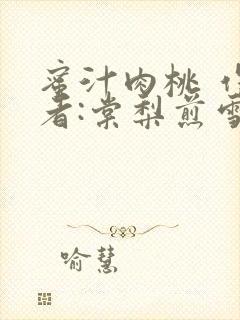 蜜汁肉桃 作
者:棠梨煎雪
喻慧